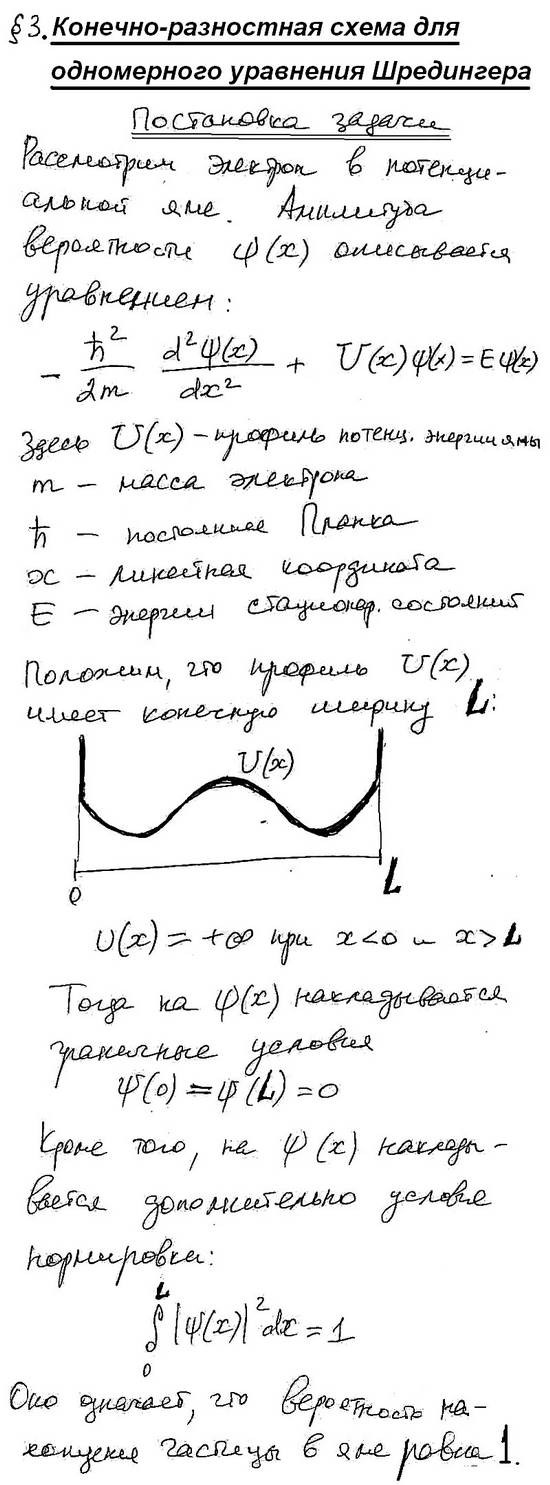 §3. Конечно-разностная схема для
одномерного уравнения Шредингера
Постановка задачи
Рассмотрим электрон в потенци-
альной яме. Амплитуда
вероятности ψ(x) описывается
уравнением:
- ħ²/2m d²ψ(x)/dx² + U(x)ψ(x) = Eψ(x)
Здесь U(x) – профиль потенц. энергии ямы
m – масса электрона
ħ – постоянная Планка
x – линейная координата
E – энергии стационар. состояний
Положим, что профиль U(x)
имеет конечную ширину L:
U(x)
0 L
U(x) = +∞ при x<0 и x>L
Тогда на ψ(x) накладывается
граничные условия
ψ(0) = ψ(L) = 0
Кроме того, на ψ(x) наклады-
вается дополнительно условие
нормировки:
∫₀ᴸ |ψ(x)|² dx = 1
Оно означает, что вероятность на-
хождения частицы в яме равна 1.